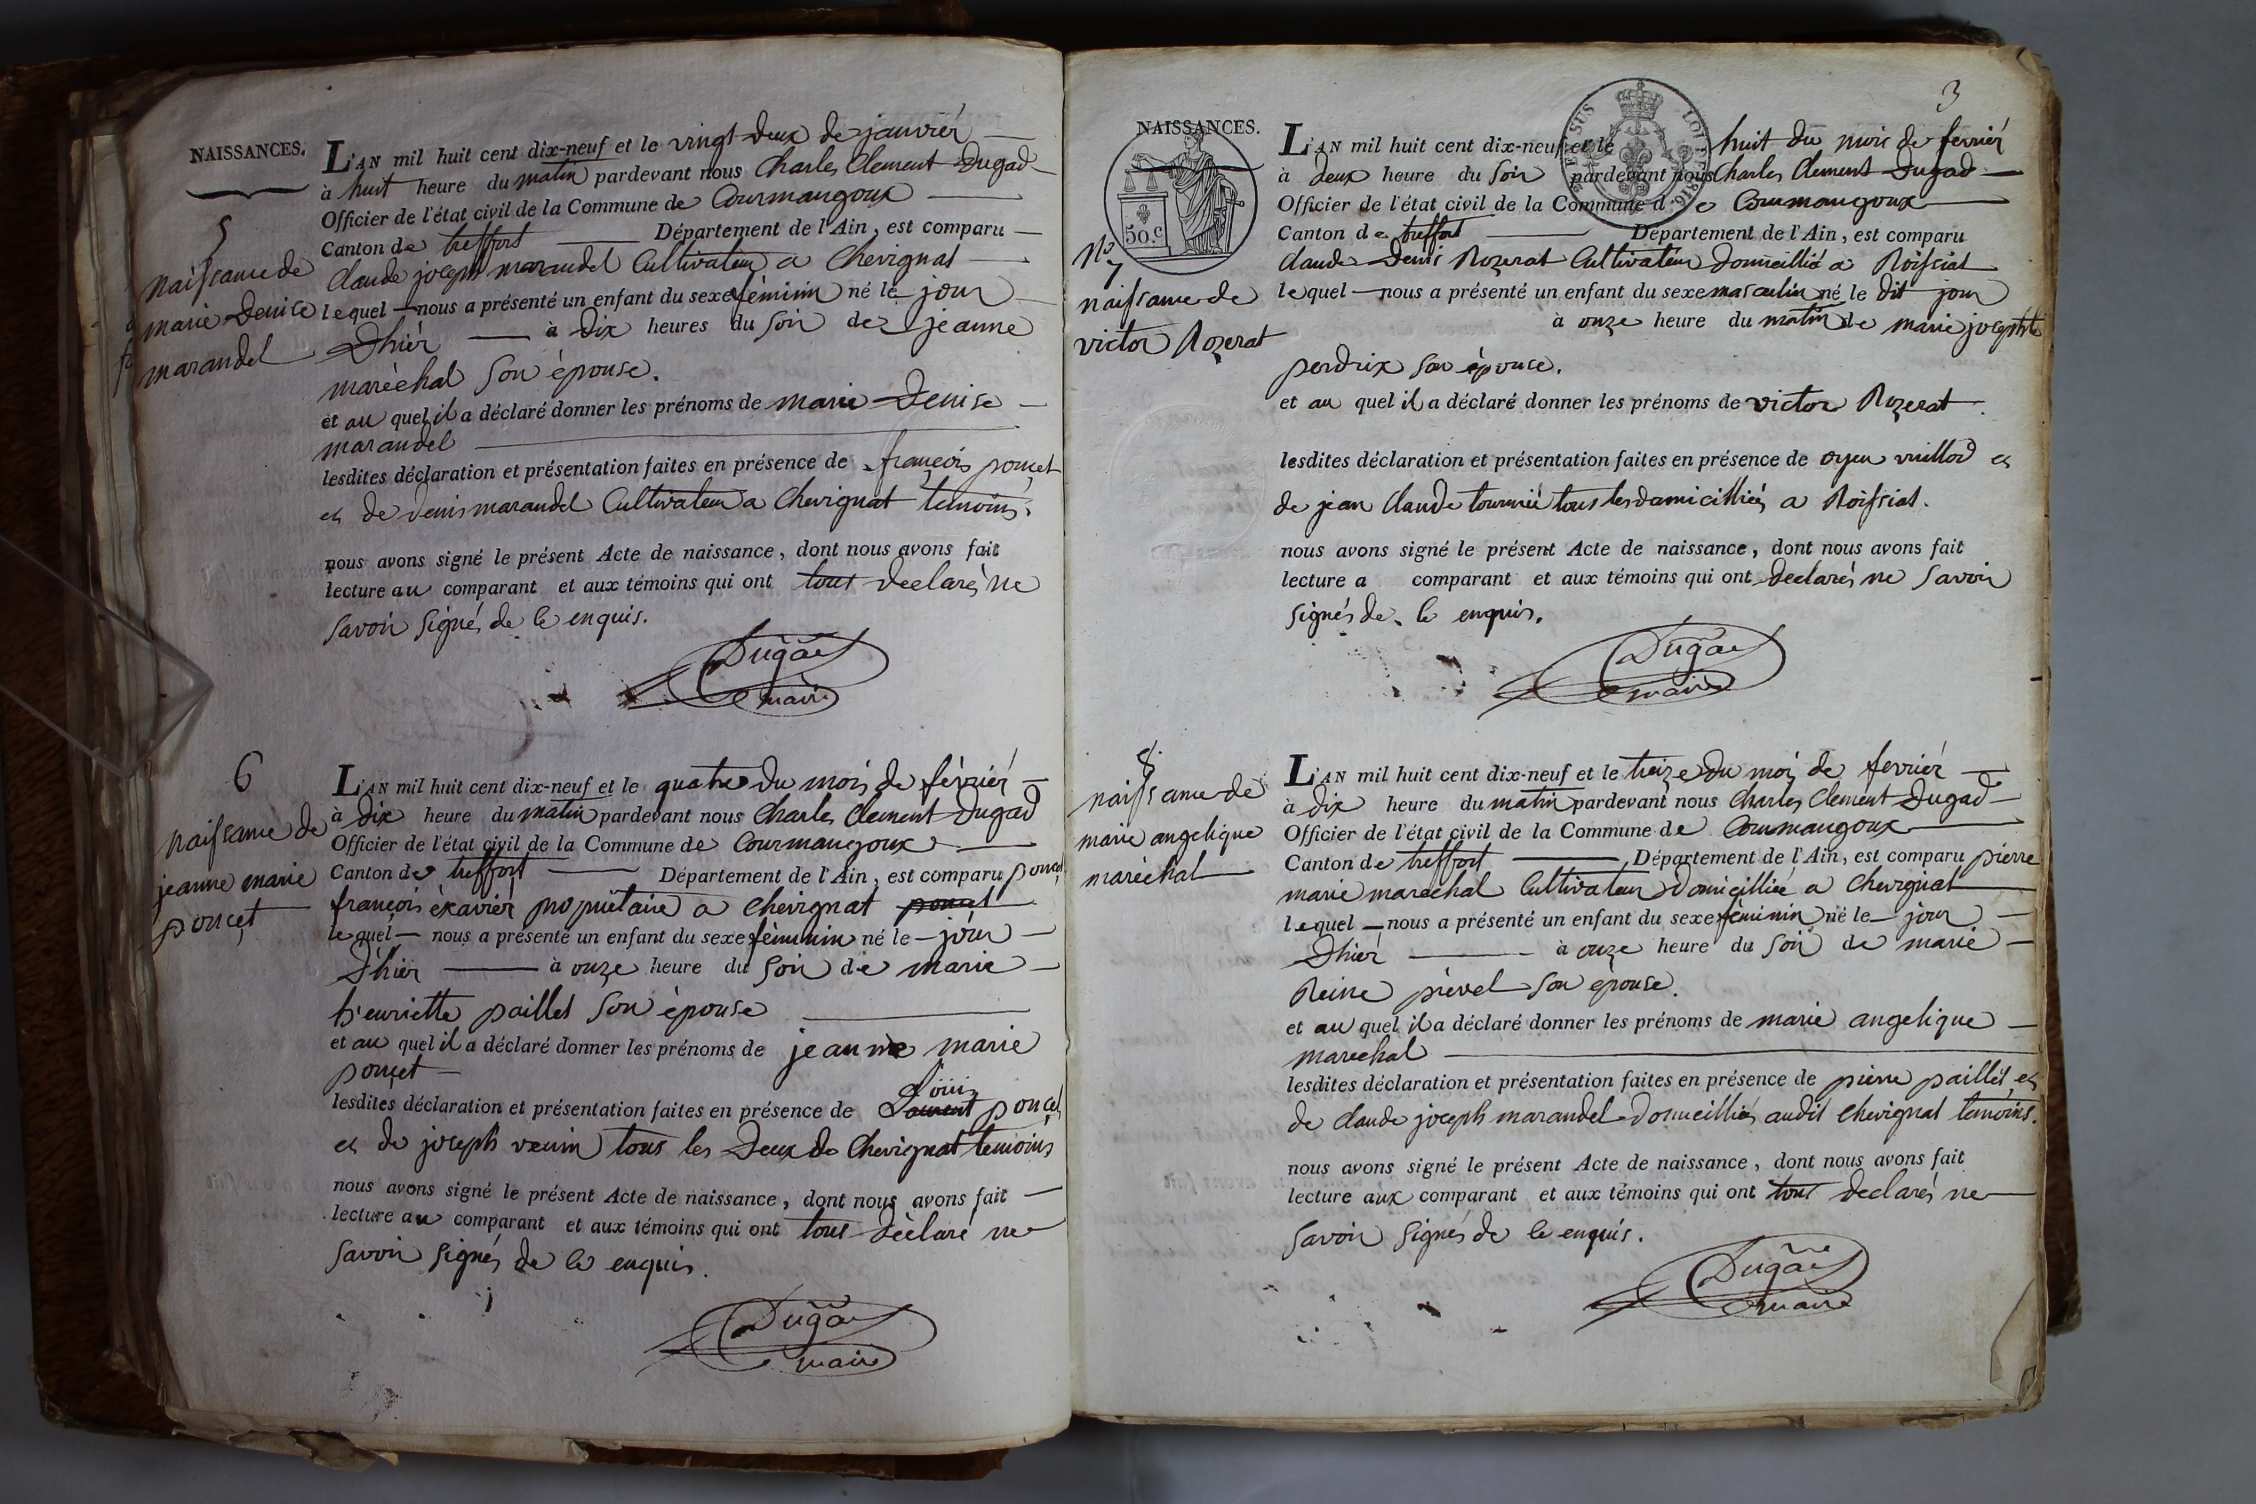 NAISSANCES.
5
naissance de
marie Denise
marandel
L'AN mil huit cent dix-neuf et le vingt Deux de janvier
à huit heure du matin pardevant nous Charles Clement Dugad
Officier de l'état civil de la Commune de Courmangoux
Canton de treffort Département de l'Ain, est comparu
Claude joseph marandel Cultivateur a Chevignat
lequel nous a présenté un enfant du sexe féminin né le jour
Dhiér à Dix heures du Soir de jeanne
maréchal Son épouse.
et au quel il a déclaré donner les prénoms de marie Denise
marandel
lesdites déclaration et présentation faites en présence de françois ponçet
et de denis marandel Cultivateur a Chevignat temoins.
nous avons signé le présent Acte de naissance, dont nous avons fait
lecture au comparant et aux témoins qui ont tous declarés ne
savoir signés de ce enquis.
Dugad
maire
6
naissance de
jeanne marie
ponçet
L'AN mil huit cent dix-neuf et le quatre du mois de février
à Dix heure du matin pardevant nous Charles Clement Dugad
Officier de l'état civil de la Commune de Courmangoux
Canton de treffort Département de l'Ain, est comparu ponçet
françois éxaviér propriétaire a Chevignat ponçet
lequel nous a présenté un enfant du sexe féminin né le jour
D'hiér à onze heure du Soir de marie
henriette paillet Son épouse
et au quel il a déclaré donner les prénoms de jeanne marie
ponçet
Loüis
lesdites déclaration et présentation faites en présence de Laurent ponçet
et de joseph vuin tous les Deux de Chevignat temoins
nous avons signé le présent Acte de naissance, dont nous avons fait
lecture au comparant et aux témoins qui ont tous déclaré ne
savoir signés de ce enquis.
Dugad
maire
3
NAISSANCES.
50.c
LOUIS
N.o 7
naissance de
victor Rozerat
L'AN mil huit cent dix-neuf et le huit du mois de fevriér
à Deux heure du Soir pardevant nous Charles Clement Dugad
Officier de l'état civil de la Commune de Courmangoux
Canton de treffort Département de l'Ain, est comparu
Claude Denis Rozerat Cultivateur Domicillié a Roissiat
lequel nous a présenté un enfant du sexe masculin né le dit jour
à onze heure du matin de marie josephte
perdrix son épouse.
et au quel il a déclaré donner les prénoms de victor Rozerat
lesdites déclaration et présentation faites en présence de oyen vuillod et
de jean Claude tournié tous les domicilliés a Roissiat.
nous avons signé le présent Acte de naissance, dont nous avons fait
lecture a comparant et aux témoins qui ont declarés ne savoir
signés de ce enquis.
Dugad
maire
8.
naissance de
marie angelique
maréchal
L'AN mil huit cent dix-neuf et le treize du mois de fevriér
à dix heure du matin pardevant nous Charles Clement Dugad
Officier de l'état civil de la Commune de Courmangoux
Canton de treffort Département de l'Ain, est comparu pierre
marie marechal Cultivateur Domicillié a Chevignat
lequel nous a présenté un enfant du sexe féminin né le jour
Dhiér à onze heure du Soir de marie
Reine prével son épouse.
et au quel il a déclaré donner les prénoms de marie angelique
marechal
lesdites déclaration et présentation faites en présence de pierre paillet et
de Claude joseph marandel domicilliés audit Chevignat temoins.
nous avons signé le présent Acte de naissance, dont nous avons fait
lecture aux comparant et aux témoins qui ont tous declarés ne
savoir signés de ce enquis.
Dugad
maire